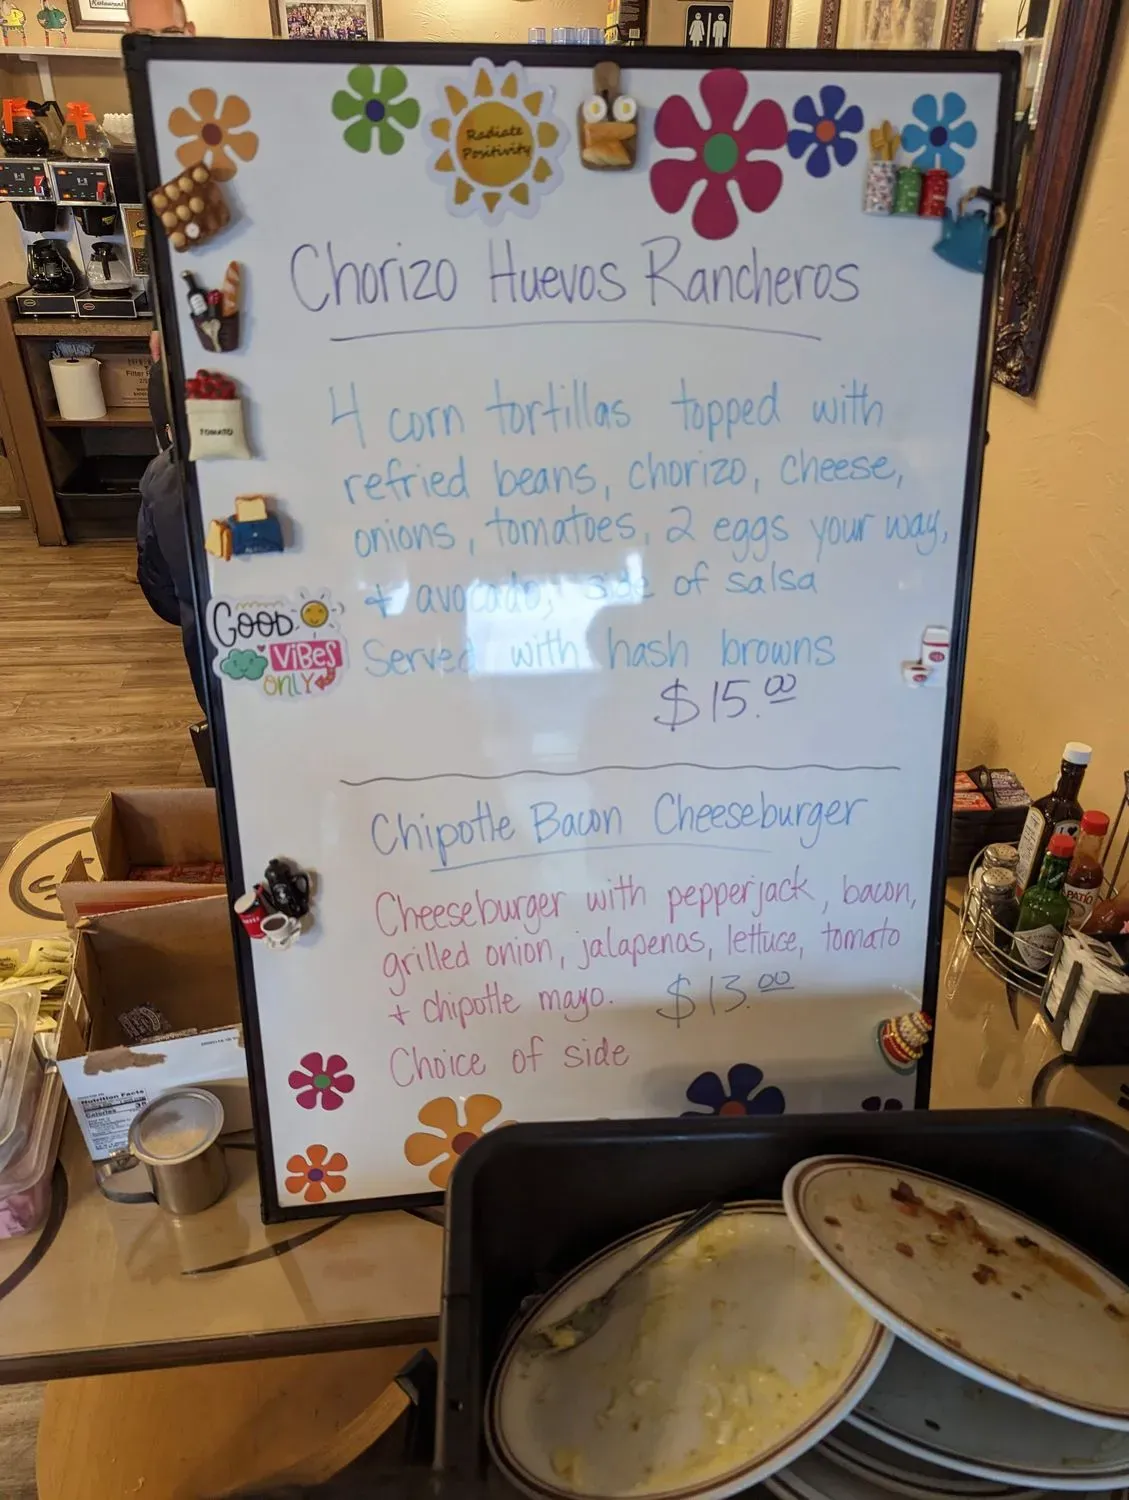 Restaurant
Radiate
Positivity
Chorizo Huevos Rancheros
4 corn tortillas topped with
refried beans, chorizo, cheese,
onions, tomatoes, 2 eggs your way,
+ avocado, side of salsa
Served with hash browns
$15.00
TOMATO
GOOD
VIBES
ONLY
Chipotle Bacon Cheeseburger
Cheeseburger with pepperjack, bacon,
grilled onion, jalapenos, lettuce, tomato
+ chipotle mayo. $13.00
Choice of side
Nutrition Facts
Calories